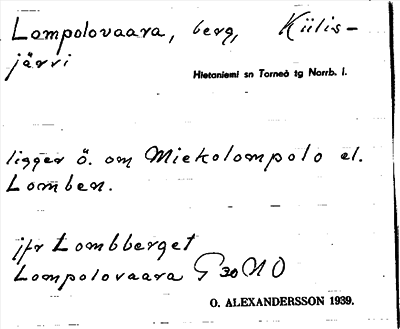 Lompolovaara, berg, Kiilis-
järvi
Hietaniemi sn Torneå tg Norrb. l.
ligger ö. om Miekolompolo el.
Lomben.
jfr Lombberget
Lompolovaara G 30 NO
O. ALEXANDERSSON 1939.